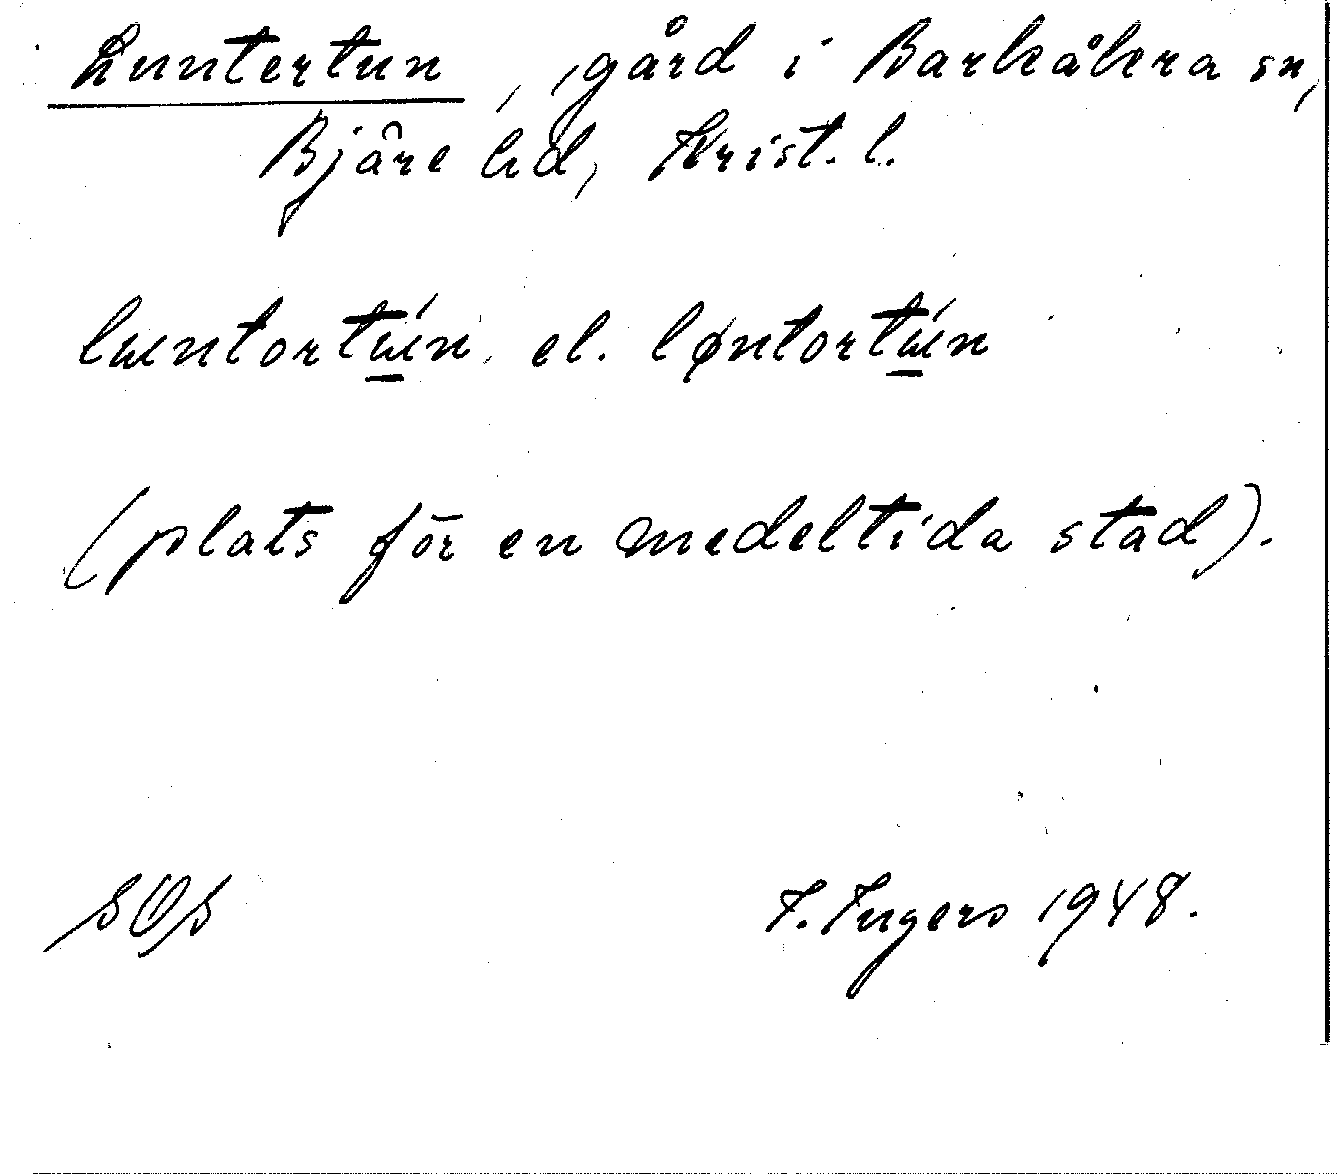 Luntertun, gård i Barkåkra sn,
Bjäre hd, Krist. l.
lɯntortɯ́n el. løntortɯ́n
(plats för en medeltida stad).
SOS I. Ingers 1948.